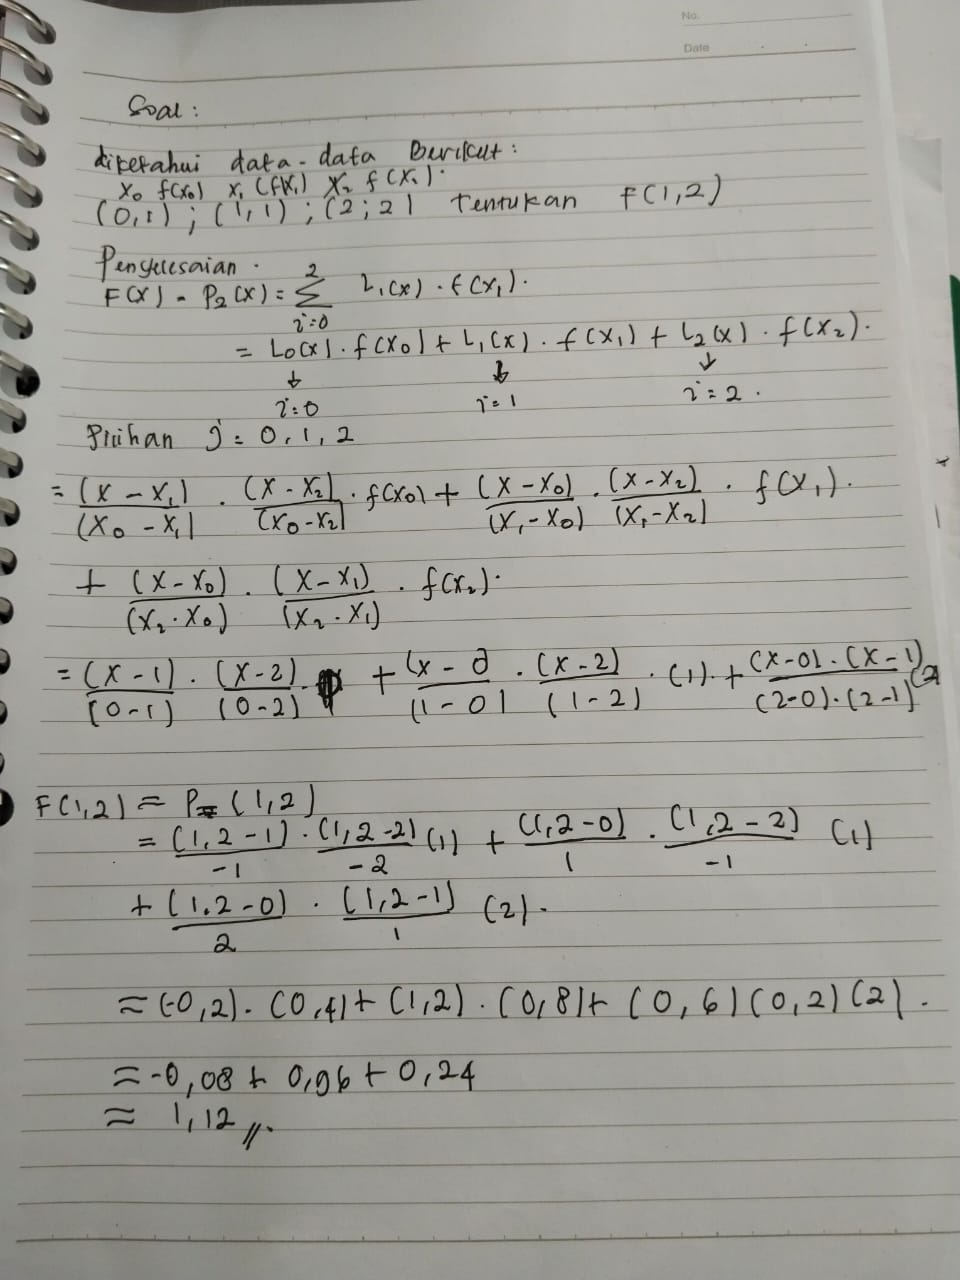 No.
Date
Soal :
diketahui data-data Berikut :
X₀ f(x₀) x₁ (f(x₁) X₂ f(x₂).
(0,1) ; (1,1) ; (2;2) Tentukan f(1,2)
Penyelesaian .
F(x) = P₂(x) = 2 Σ i=0 Lᵢ(x) . f(xᵢ).
= L₀(x) . f(x₀) + L₁(x) . f(x₁) + L₂(x) . f(x₂).
↓ ↓ ↓
i=0 i=1 i=2 .
Pilihan j = 0,1,2
= (x - x₁)/(x₀ - x₁) . (x - x₂)/(x₀ - x₂) . f(x₀) + (x - x₀)/(x₁ - x₀) . (x - x₂)/(x₁ - x₂) . f(x₁).
+ (x - x₀)/(x₂ - x₀) . (x - x₁)/(x₂ - x₁) . f(x₂).
= (x - 1)/(0 - 1) . (x - 2)/(0 - 2) . + (x - 0)/(1 - 0) . (x - 2)/(1 - 2) . (1). + (x - 0) . (x - 1)/(2-0).(2-1) 2
F(1,2) ≈ P₂ (1,2)
= (1,2 - 1)/-1 . (1,2 - 2)/-2 (1) + (1,2 - 0)/1 . (1,2 - 2)/-1 (1)
+ (1.2 - 0)/2 . (1,2 - 1)/1 (2).
≈ (-0,2). (0,4) + (1,2) . (0,8) + (0,6) (0,2) (2) .
≈ -0,08 + 0,96 + 0,24
≈ 1,12 //.